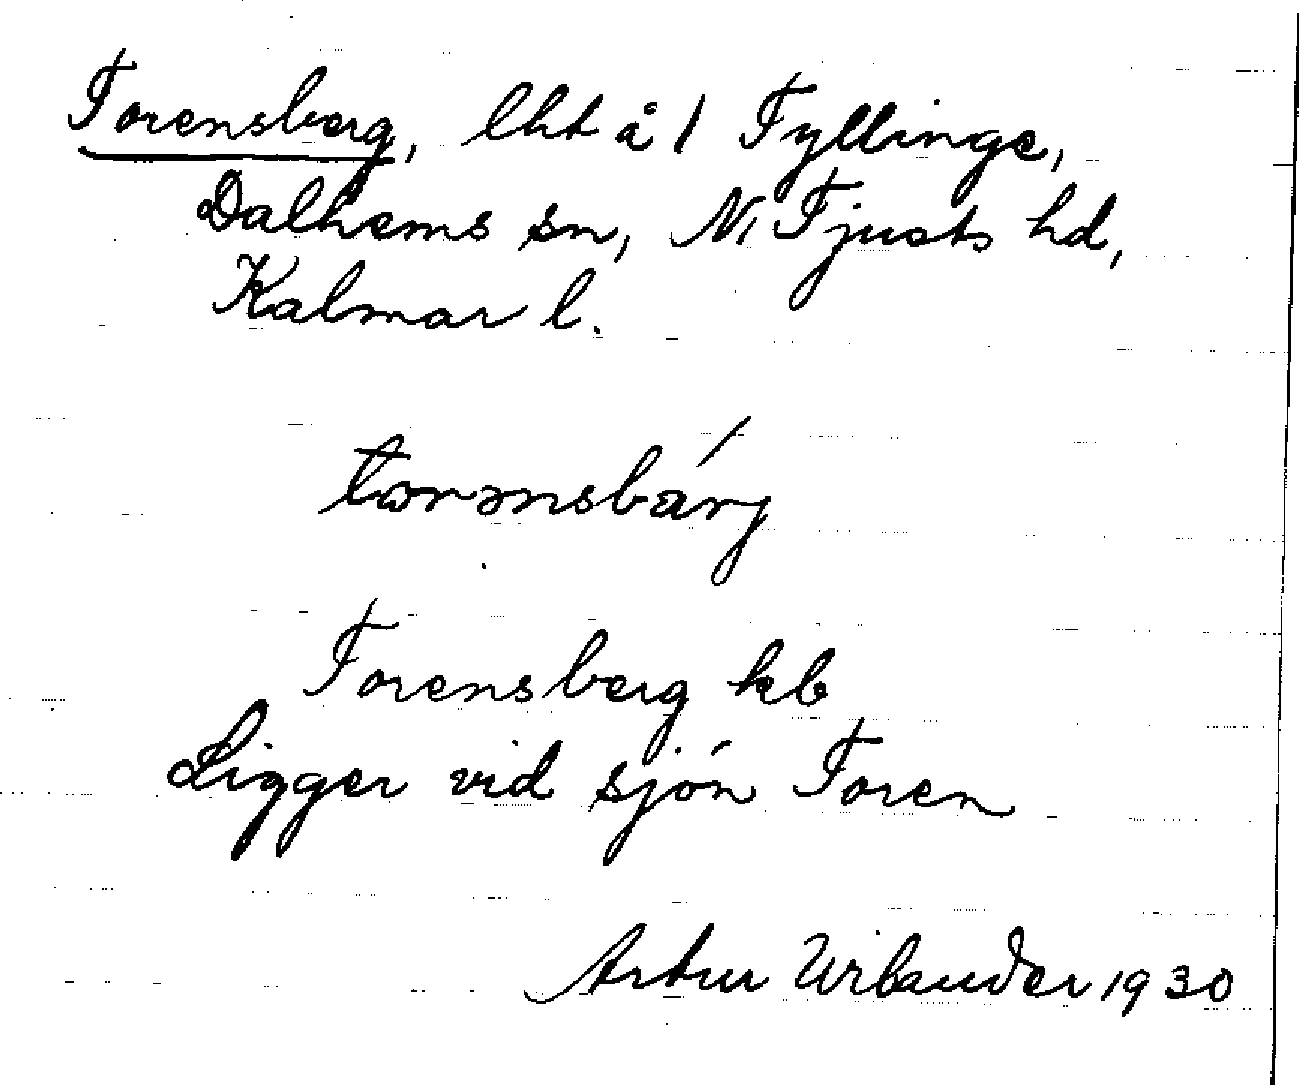 Torensberg, lht å 1 Tyllinge,
Dalhems sn, N. Tjusts hd,
Kalmar l.
torənsbärj
Torensberg kb
Ligger vid sjön Toren
Artur Wilander 1930